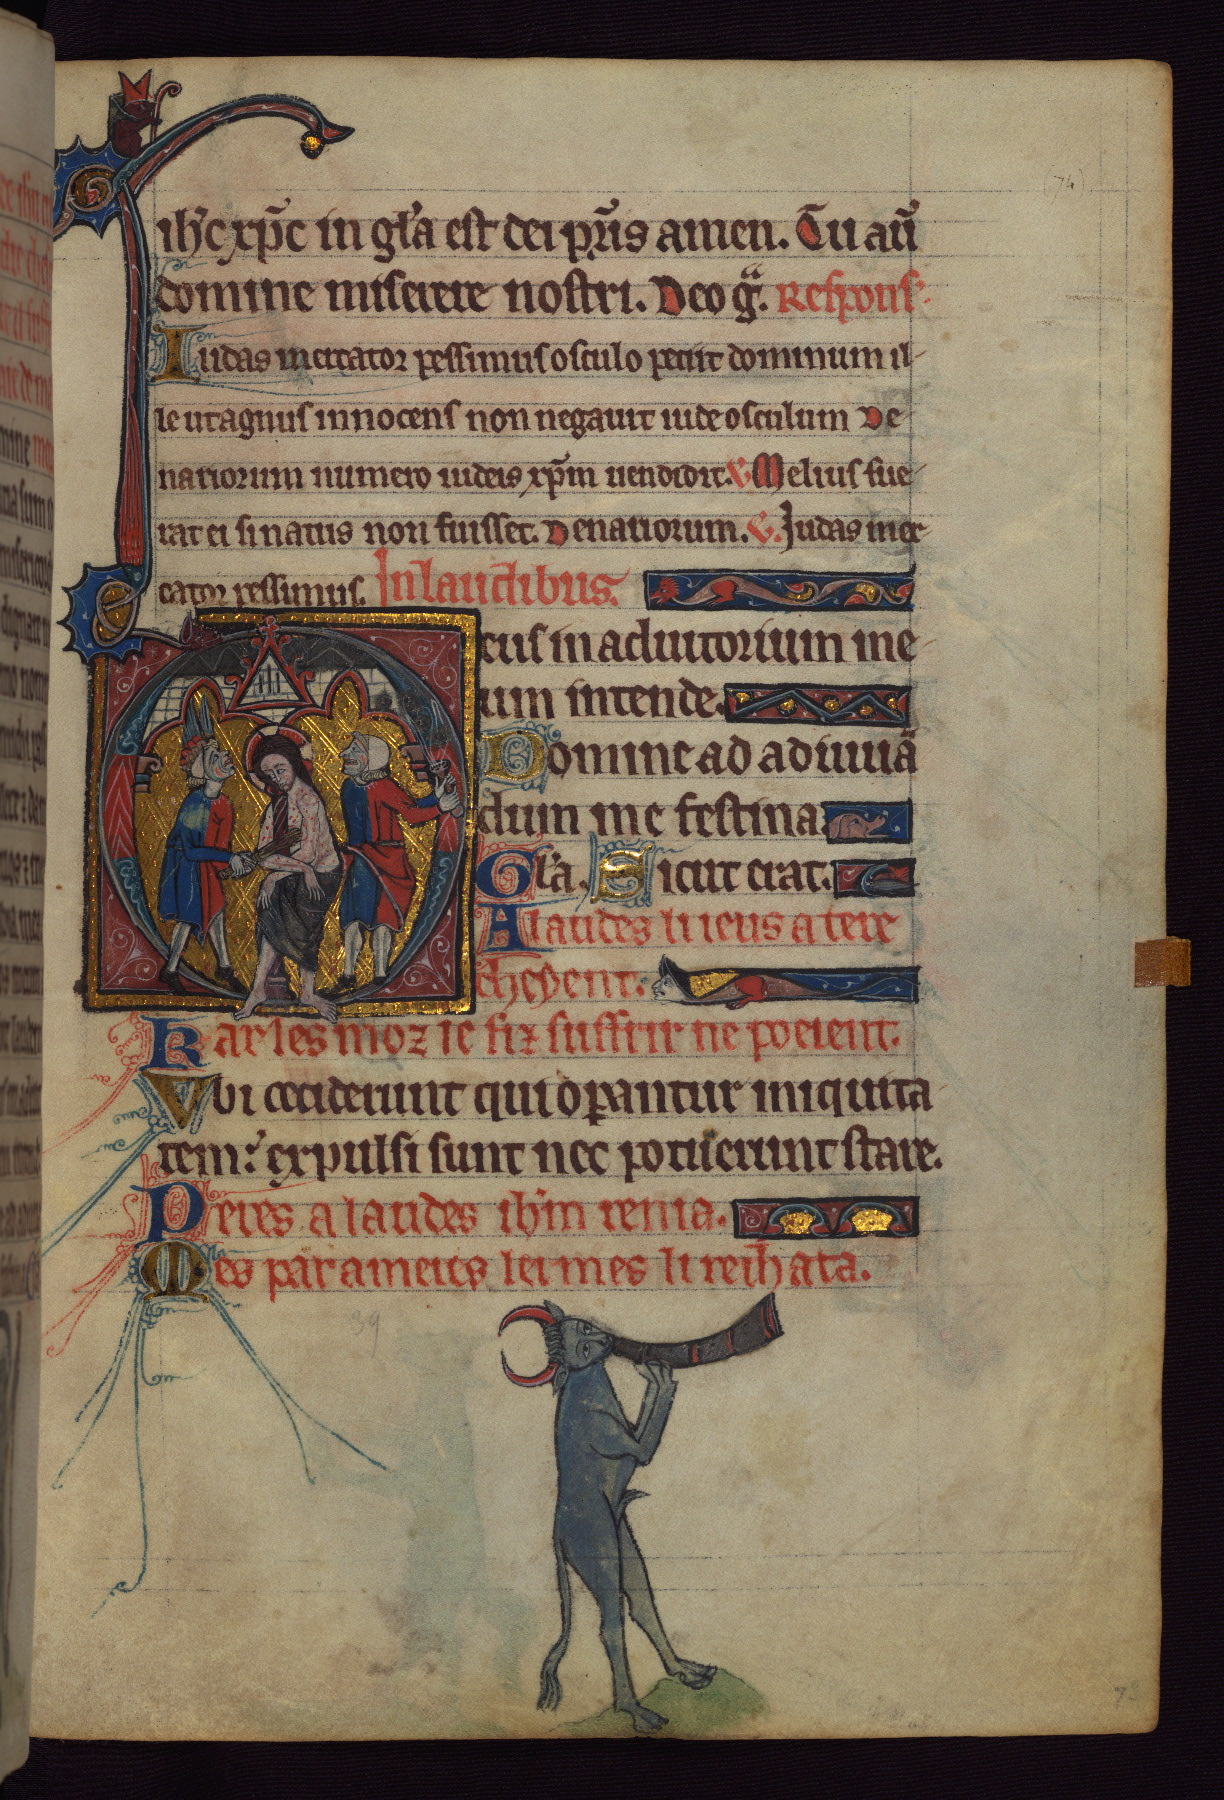 ih'c xp̄c in gl'a est dei pr̄is amen. Tu aū
domine miserere nostri. Deo gͣ. Respons'.
Iudas mercator pessimus osculo petiit dominum il-
le ut agnus innocens non negavit iude osculum De-
nariorum numero iudeis xp̄m uendidit. V Melius fue-
rat ei si natus non fuisset. Denariorum. V. Iudas mer-
cator pessimus. In laudibus.
Deus in adiutorium me-
um intende.
Domine ad adiuuā
dum me festina.
Gl'a. Sicut erat.
A laudes li ieus a tere
cheyent.
Kar les moz ie fiz suffrir ne poeient.
Vbi ceciderunt qui operantur iniquita
tem: expulsi sunt nec potuerunt stare.
Peres a laudes ih'm renia.
Mes par ameres lermes li reih ata.
39
(74)